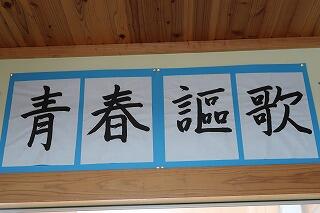 青春謳歌